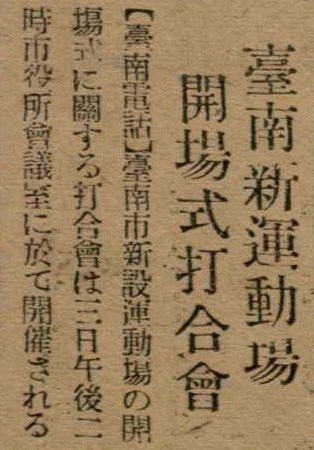 臺南新運動場
開場式打合會
【臺南電話】臺南市新設運動場の開
塲式に關する打合會は三日午後二
時市役所會議室に於て開催される